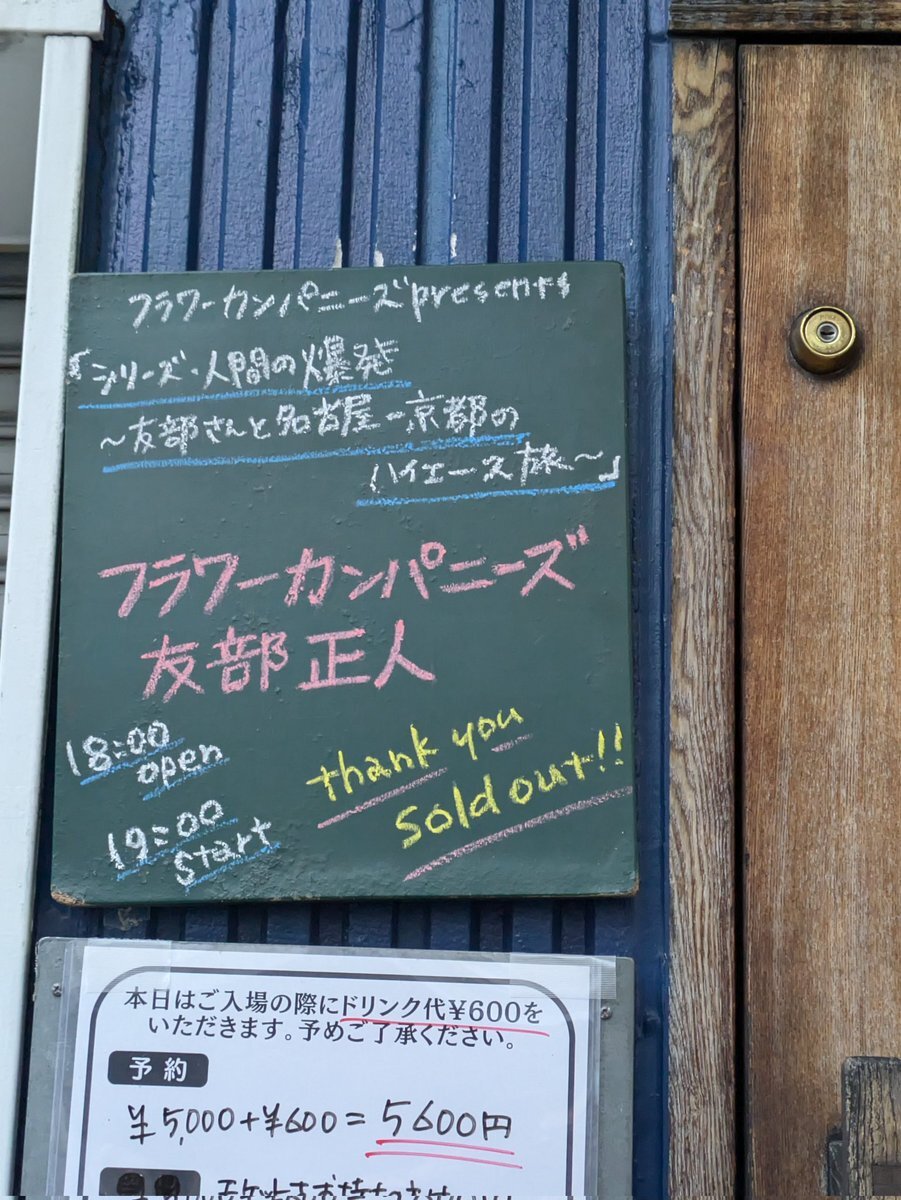 フラワーカンパニーズpresents
「シリーズ・人間の爆発
～友部さんと名古屋-京都の
ハイエース旅～」
フラワーカンパニーズ
友部正人
18:00
open
19:00
start
thank you
sold out!!
本日はご入場の際にドリンク代¥600を
いただきます。予めご了承ください。
予約
¥5,000+¥600=5600円